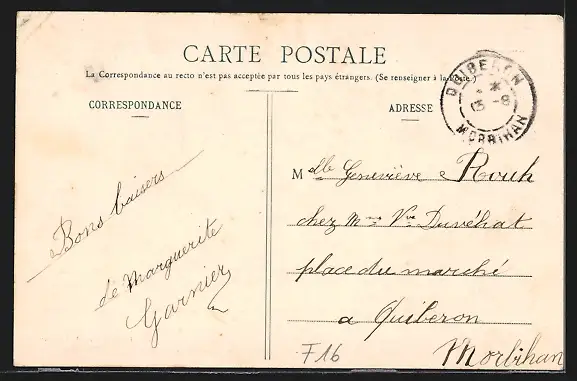 CARTE POSTALE
La Correspondance au recto n'est pas acceptée par tous les pays étrangers. (Se renseigner à la Poste.)
CORRESPONDANCE
ADRESSE
QUIBERON
13 - 8
MORBIHAN
Bons baisers
de Marguerite
Garnier
Mlle Geneviève Rouh
chez Mme Vve Duvéhat
place du marché
a Quiberon
Morbihan
F16